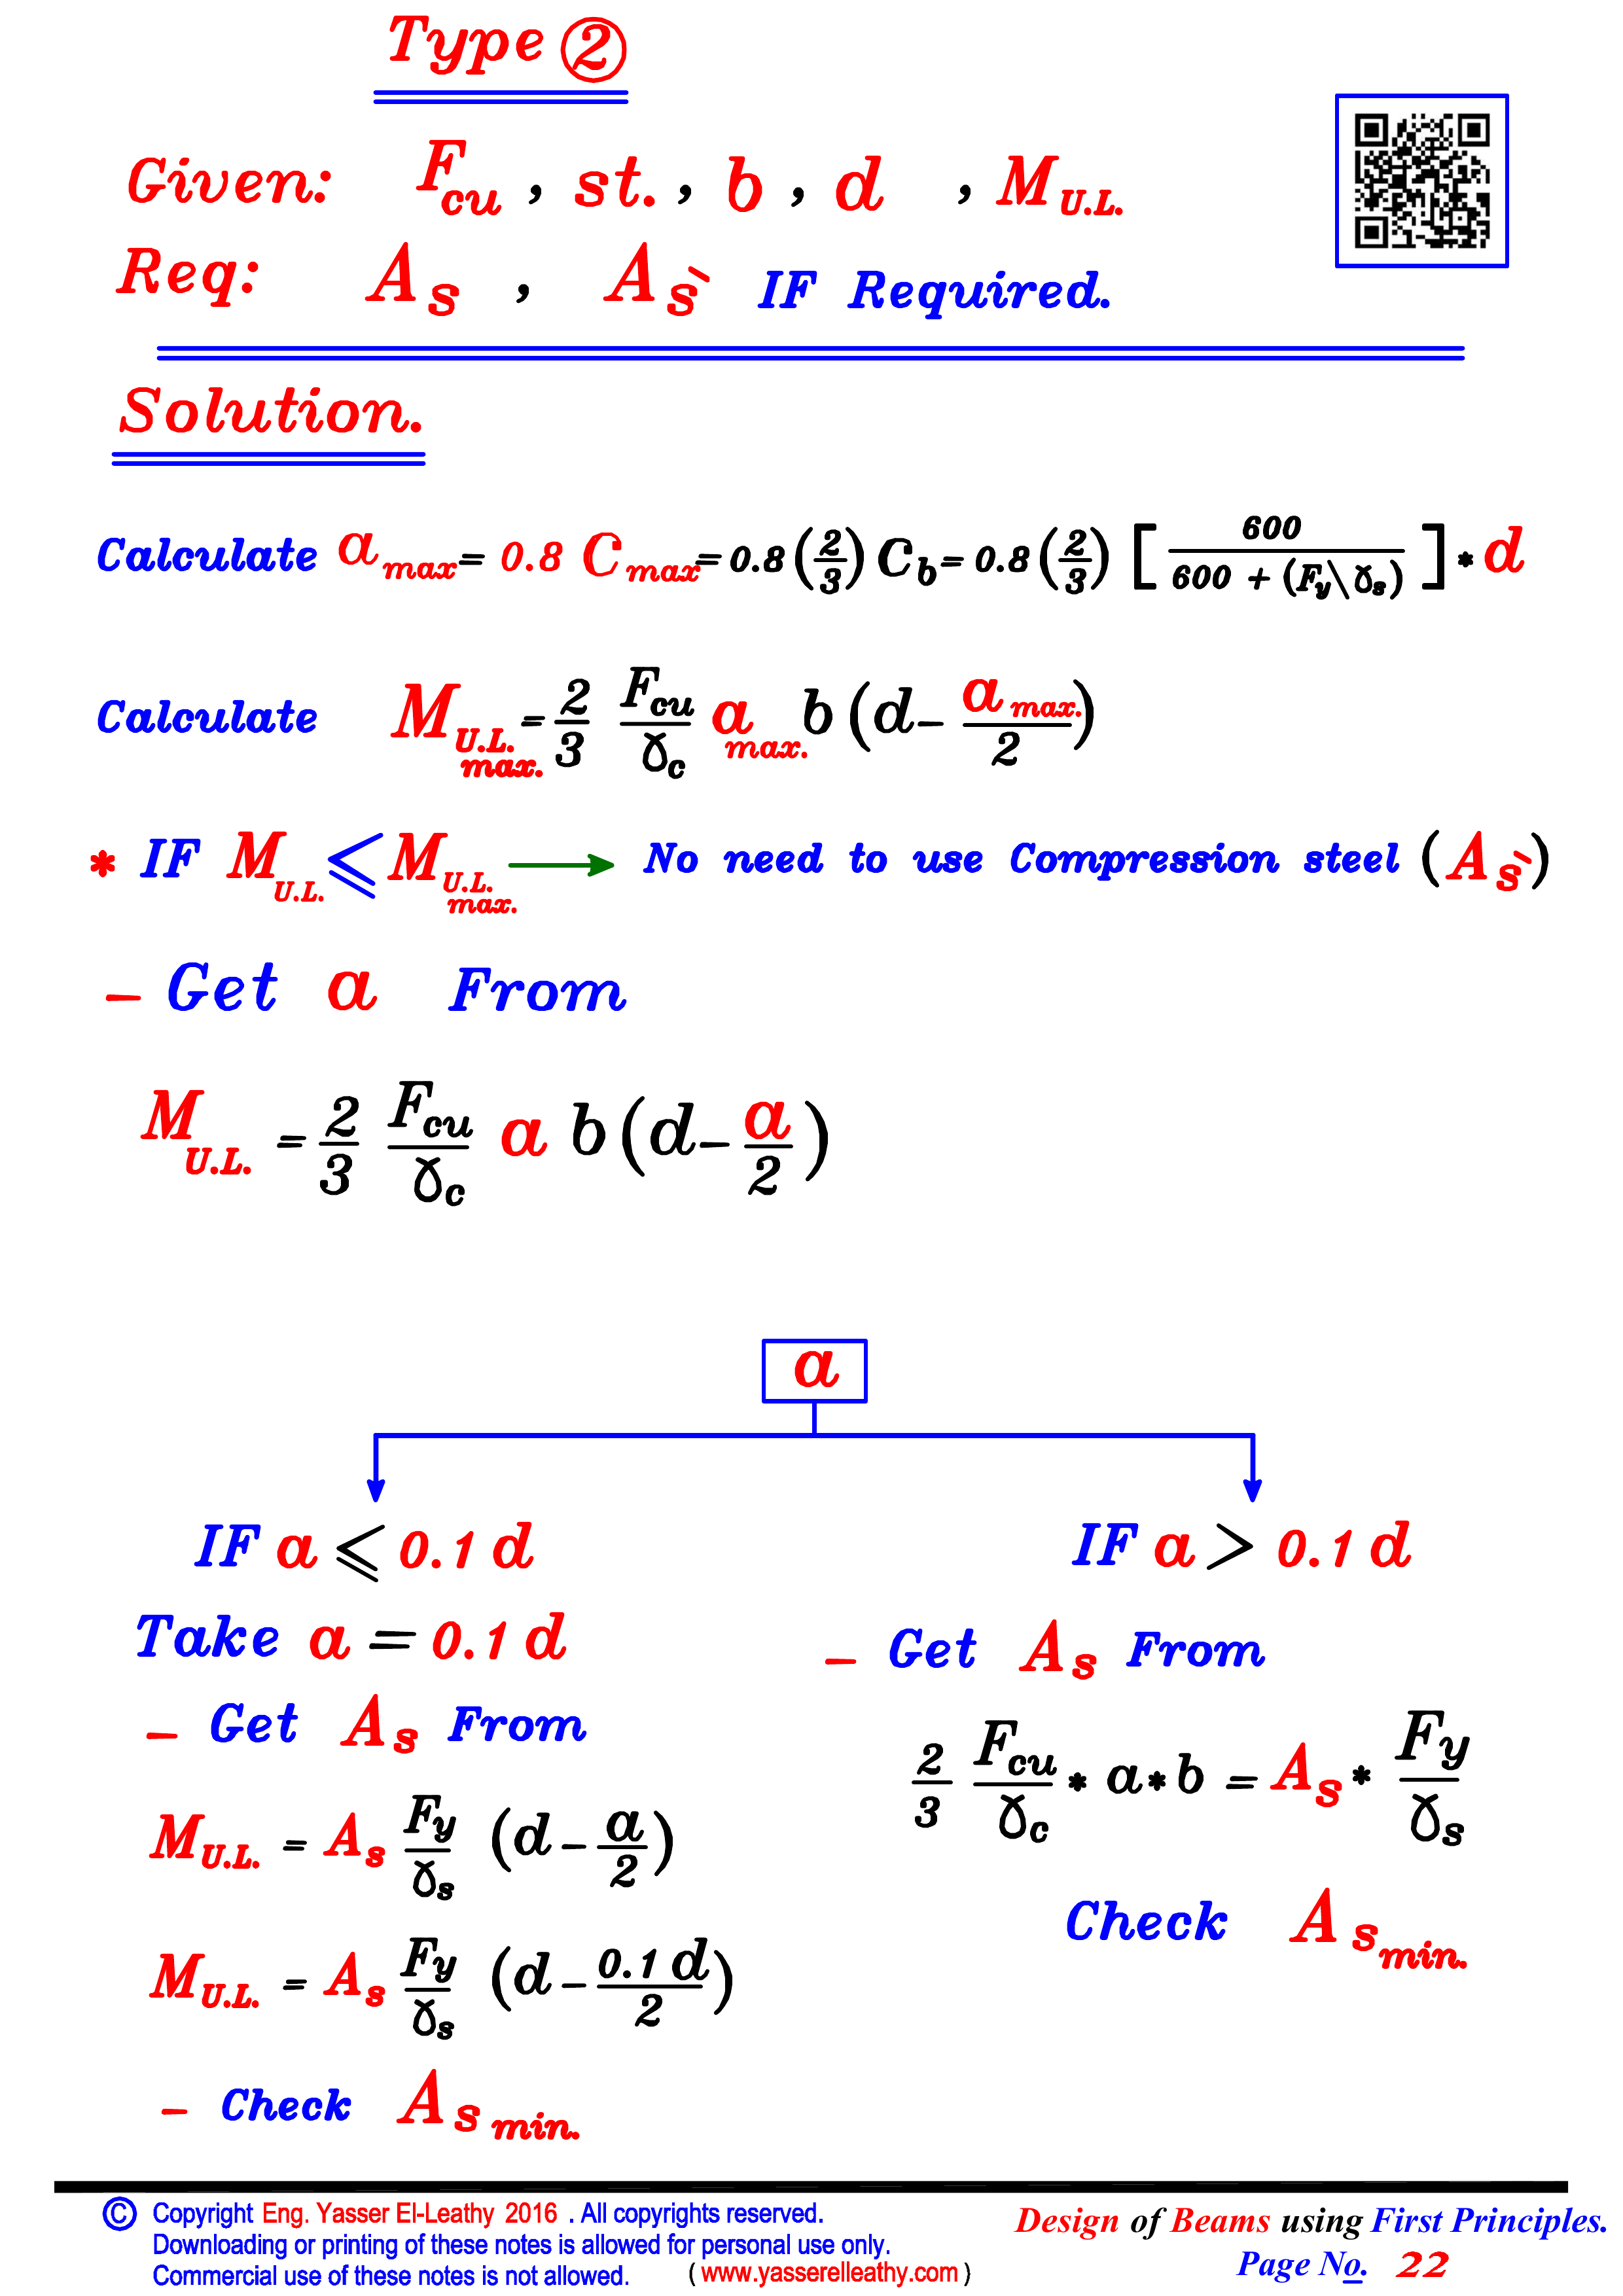 Type ②
Given: Fcu , st. , b , d , M U.L.
Req: As , As` IF Required.
Solution.
Calculate a max = 0.8 C max = 0.8 (2/3) Cb = 0.8 (2/3) [ 600 / 600 + (Fy\γs) ] * d
Calculate M U.L. max. = 2/3 Fcu/γc a max. b (d - a max./2)
* IF M U.L. ⩽ M U.L. max. → No need to use Compression steel (As`)
- Get a From
M U.L. = 2/3 Fcu/γc a b (d - a/2)
a
IF a ⩽ 0.1 d
Take a = 0.1 d
- Get As From
M U.L. = As Fy/γs (d - a/2)
M U.L. = As Fy/γs (d - 0.1 d/2)
- Check As min.
IF a > 0.1 d
- Get As From
2/3 Fcu/γc * a * b = As * Fy/γs
Check As min.
© Copyright Eng. Yasser El-Leathy 2016 . All copyrights reserved.
Downloading or printing of these notes is allowed for personal use only.
Commercial use of these notes is not allowed. ( www.yasserelleathy.com )
Design of Beams using First Principles.
Page No. 22